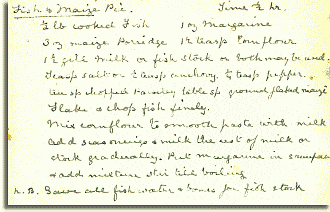 Fish & Maize Pie. Time ½ hr.
½ lb cooked Fish 1 oz Margarine
3 oz maize Porridge 1½ teasp Cornflour
1½ gill Milk or fish stock or both may be used.
Teasp salt or ½ teasp anchovy. ¼ teasp pepper.
teasp chopped Parsley tablesp ground flaked maize
Flake & chop fish finely.
Mix cornflour to smooth paste with milk
Add seasonings & milk the rest of milk or
stock gradually. Put margarine in saucepan
& add mixture stir till boiling
N.B. Save all fish water & bones for fish stock